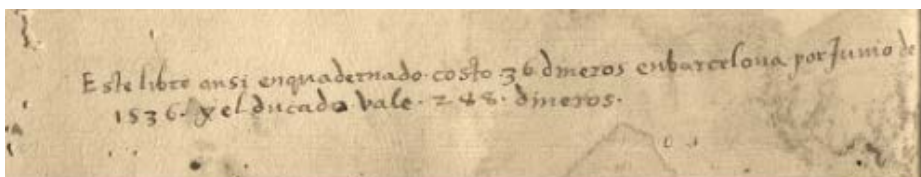 Este libro ansi enquadernado costo .36 dineros en barcelona por Junio de
1536. y el ducado vale .288. dineros.